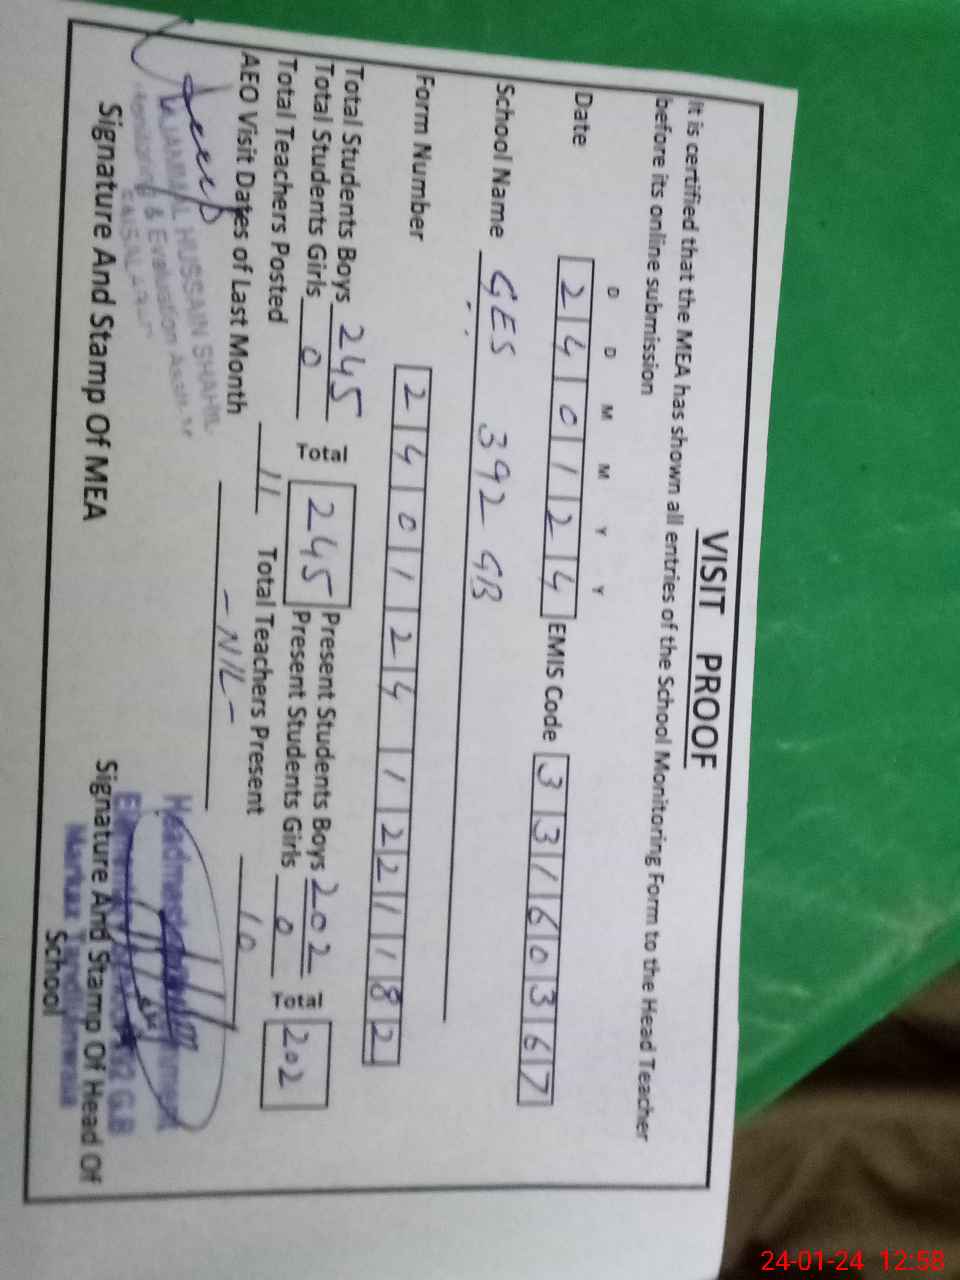 VISIT PROOF
It is certified that the MEA has shown all entries of the School Monitoring Form to the Head Teacher
before its online submission
D D M M Y Y
Date 240124 EMIS Code 33160367
School Name GES 392 GB
Form Number 2401241221182
Total Students Boys 245 Total 245 Present Students Boys 202 Total 202
Total Students Girls 0 Present Students Girls 0
Total Teachers Posted 11 Total Teachers Present 10
AEO Visit Dates of Last Month - NIL -
HUSSAIN SHAHI
Monitoring & Evaluation
FAISALABAD
Headmaster
G.B
Markaz
Signature And Stamp Of MEA
Signature And Stamp Of Head Of
School
24-01-24 12:58